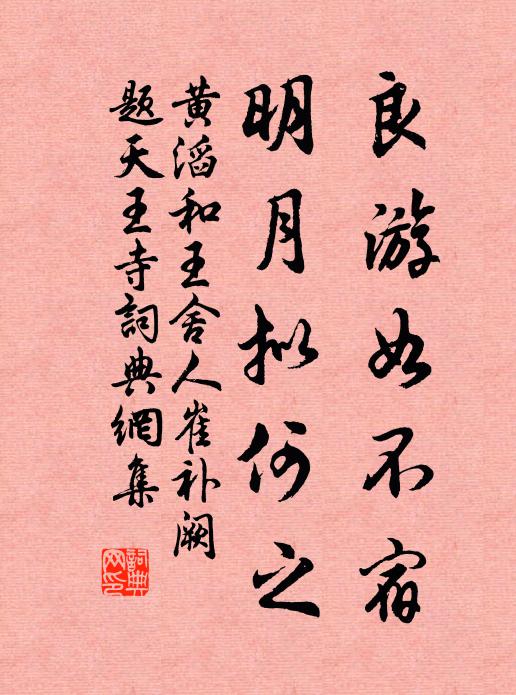 良游如不宿
明月拟何之
黄滔和王舍人崔补阙
题天王寺词典網集
詞典網印